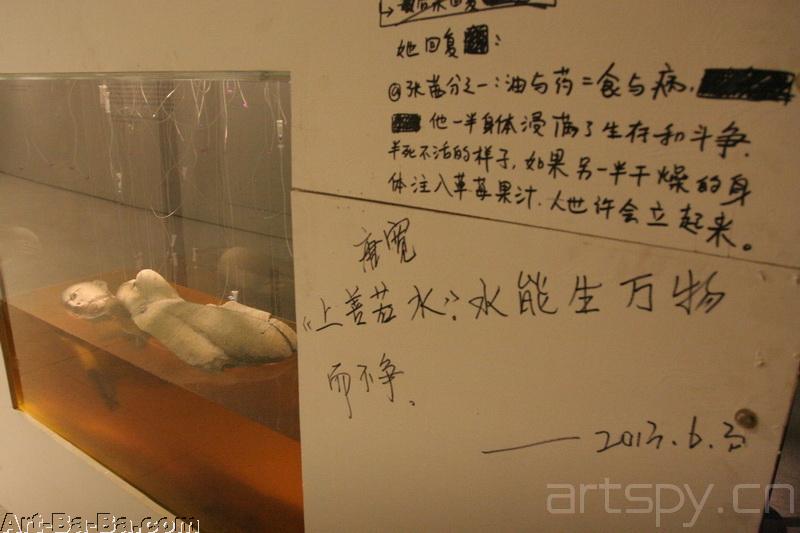 她回复 :
@张茵分之一:油与药=食与病,
他一半身体浸满了生存和斗争,
半死不活的样子,如果另一半干燥的身
体注入草莓果汁,人也许会立起来。
唐宽
《上善若水》:水能生万物
而不争,
—— 2013.6.3
artspy.cn
Art-Ba-Ba.com